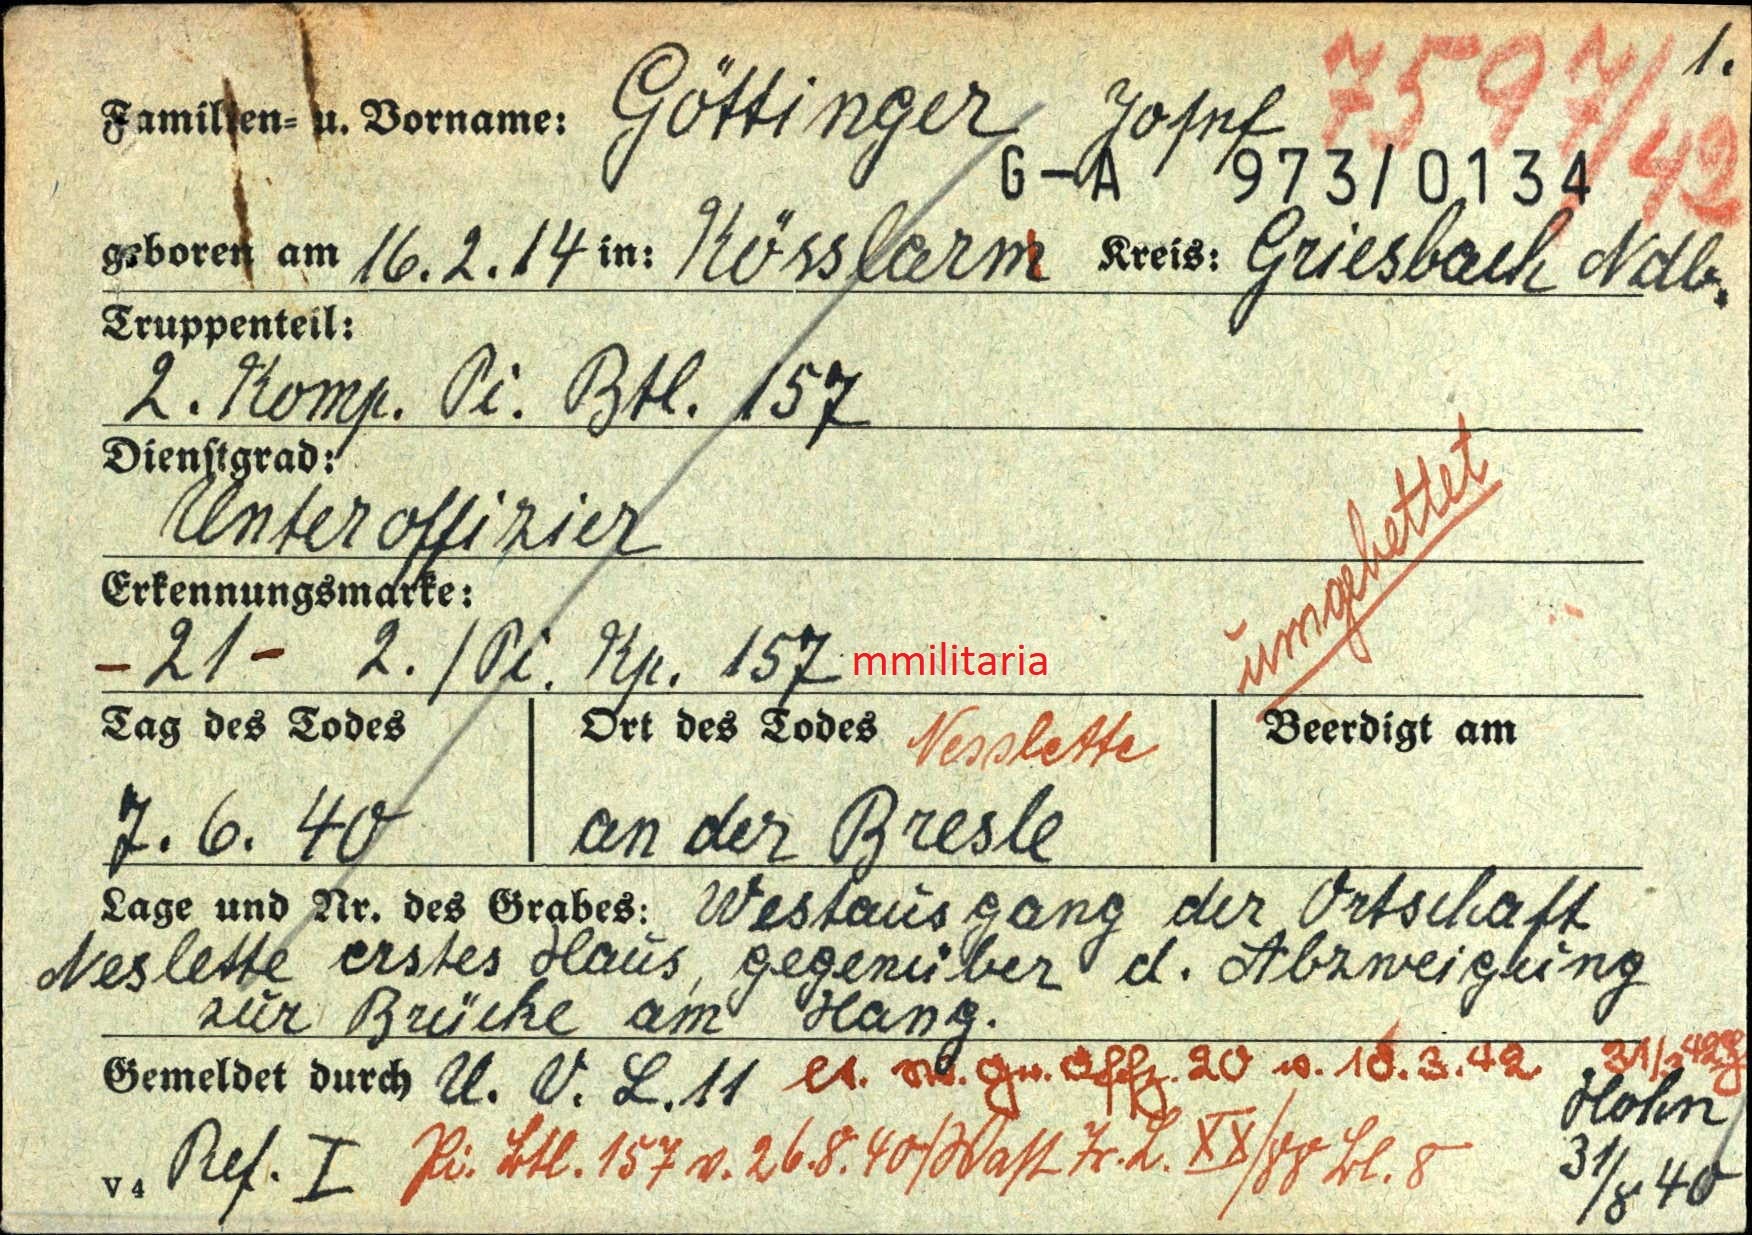 7597/42 1.
Familien- u. Vorname: Göttinger Josef
G-A 973/0134
geboren am 16.2.14 in: Kösslarn Kreis: Griesbach Ndb.
Truppenteil:
2. Komp. Pi. Btl. 157
Dienstgrad:
Unteroffizier
Erkennungsmarke:
umgebettet
-21- 2./Pi. Kp. 157 mmilitaria
Tag des Todes Ort des Todes Nesslette Beerdigt am
7. 6. 40 an der Bresle
Lage und Nr. des Grabes: Westausgang der Ortschaft
Neslette erstes Haus, gegenüber d. Abzweigung
zur Brücke am Hang.
Gemeldet durch U. V. L. 11 Gr. Offz. 20 v. 18.3.42.
Hohn
V 4 Ref. I Pi. Btl. 157 v. 26.8.40/Wast Fr. L. XX/88 Bl. 8
31/8 40